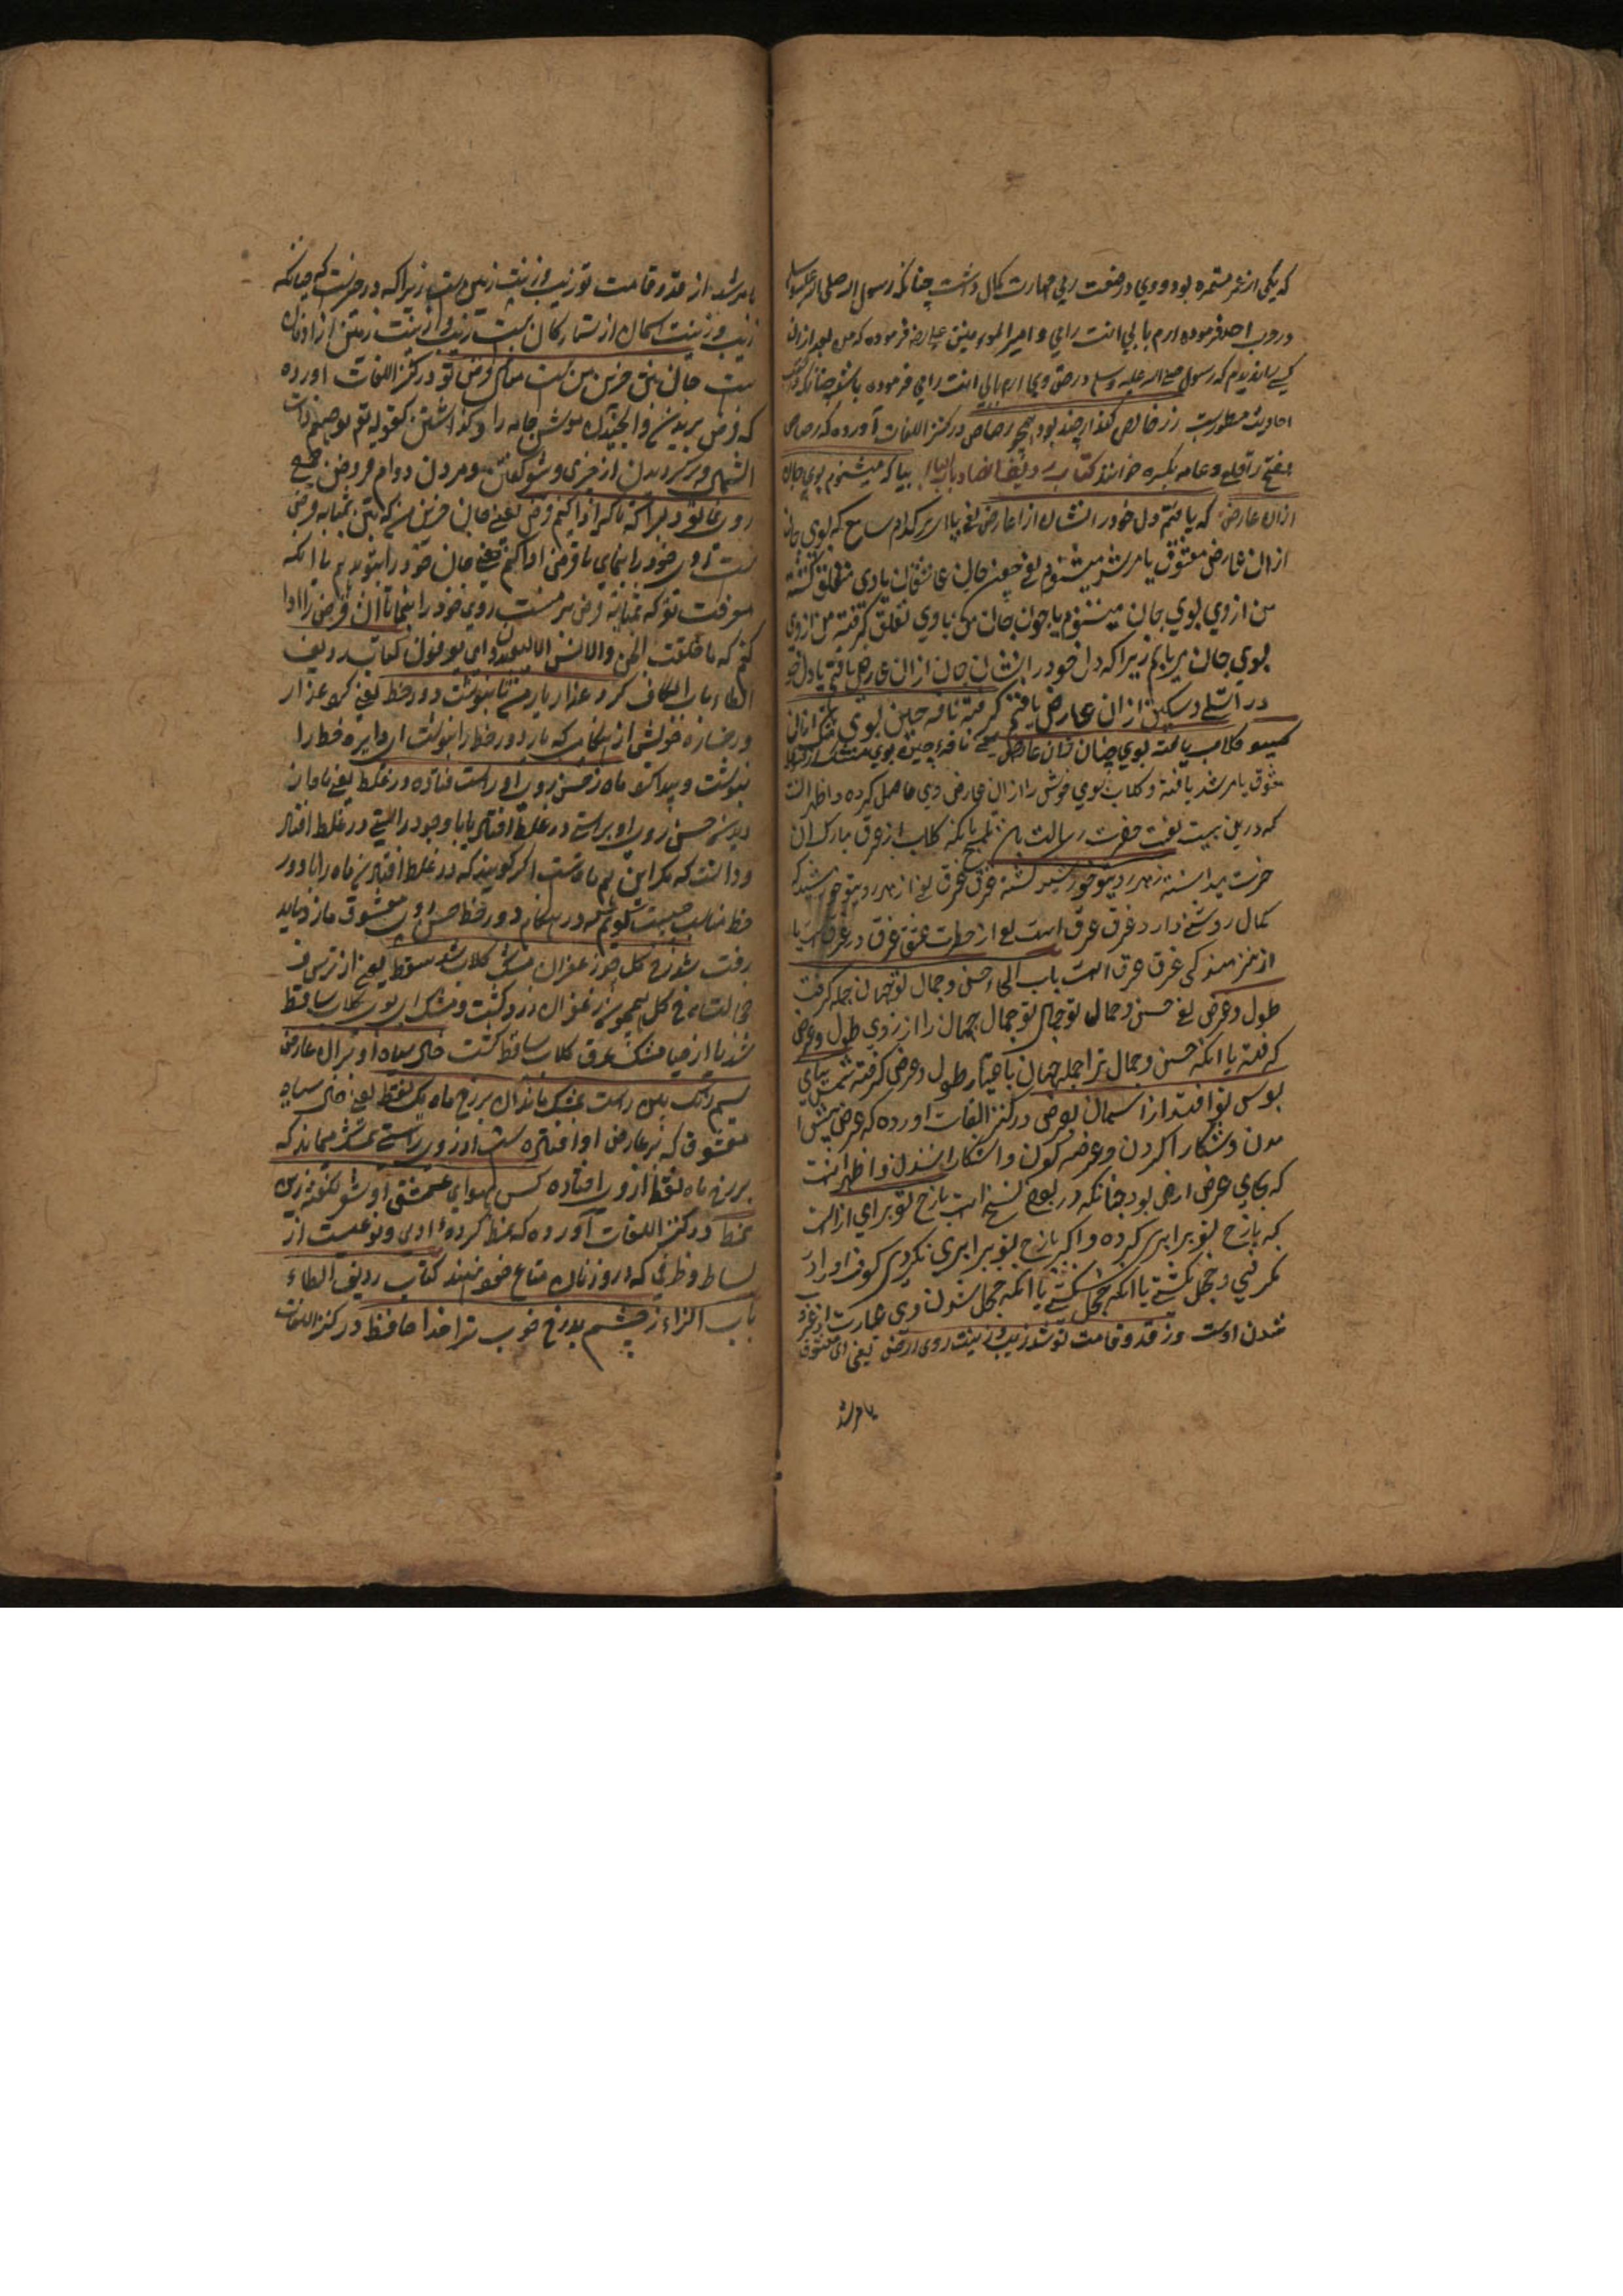 که یکی از عشر مبشره بود و وی در صنعت رمی مهارت کمال داشت چنانکه رسول الله صلی الله علیه وسلم
در حرب احد فرموده ارم بابی انت وامی و امیر المومنین علی رض فرموده که من بعد ازان
کسی را ندیدم که رسول صلی الله علیه وسلم در حق وی ارم بابی انت وامی فرموده باشد چنانکه در کتب
احادیث مسطورست زر خالص کند ارچند بود همچو رصاص در کنز اللغات آورده که رصاص
بفتح را قلعی و عامه بکسره خوانند کتاب ردیف الضاد باب الباء بیا که میشنوم بوی جان
ازان عارض که یافتم دل خود را نشان ازان عارض یعنی بیا ای سامع که بوی جان
ازان عارض معشوق یا مرشد میشنوم یعنی چون جان عاشقان با وی متعلق گشته
من از وی بوی جان میشنوم یا چون جان من با وی تعلق گرفته من از وی
بوی جان می‌یابم زیرا که دل خود را نشان جان ازان عارض یافتم یا دل خود
را تسلی و تسکین ازان عارض یافتم گرفته نافه چین بوی مشک ازان
گیسو گلاب یافته بوی چنان ازان عارض یعنی نافه چین بوی مشک از گیسوی
معشوق یا مرشد یافته و گلاب بوی خوش را ازان عارض وی حاصل کرده و اظهر آنست
که درین بیت نعت حضرت رسالت بآن تلمیح بآنکه گلاب از عرق مبارک آن
حضرت پیدا شده ز مهر روی تو خورشید گشته غرق عرق یعنی از مهر روی تو خورشید که
کمال روشنی دارد غرق عرق است یعنی از حرارت عشق غرق در عرق است یا
از شرمندگی غرق عرق است باب الجیم حسن و جمال تو جهان جمله گرفت
طول و عرض یعنی حسن و جمال تو جمال جهان را از روی طول و عرض
گرفته یا آنکه حسن و جمال ترا جمله جهان باعتبار طول و عرض گرفته شمس بپای
بوس تو افتد از آسمان بعرض در کنز اللغات آورده که عرض پیش آ
مدن و آشکارا کردن و عرضه کردن و آشکارا شدن و اظهر آنست
که بجای عرض ارض بود چنانکه در بعضی نسخ است با رخ تو برای آنست
که با رخ تو برابری کرده و اگر با رخ تو برابری نکردی کسوف او را در
نگرفتی و خجل نگشتی یا آنکه خجل شدن وی عبارت از غروب
شدن اوست وز قد و قامت تو شد زیب و زینت روی ارض یعنی ای معشوق
یا مرشد
یا مرشد از قد و قامت تو زیب و زینت زمین است زیرا که در خبرست که چنانکه
زیب و زینت آسمان از ستارگان است زیب و زینت زمین از آدمیان
است جان من فرض من است مثال فرض تو در کنز اللغات آورده
که فرض بریدن و الجنیدن موش جامه را و گذاشتن کقوله تعم تقرضهم ذات
الشمال و برگردیدن از چیزی و شعر گفتن و مردن دوام و قرض یعنی
روی بنما تو دلبرا که تا که ادا کنم قرض یعنی جان قرض من که بمن بمثابه قرض
است ای روی خود را بنمای تا قرض ادا کنم یعنی جان خود را بتو دهم یا آنکه
معرفت تو که بمثابه قرض من است روی خود را بنما تا آن قرض را ادا
کنم که ما خلقت الجن والانس الا لیعبدون ای لیعرفون کتاب ردیف
الطاء باب الکاف گرد عذار یار من تا بنوشت دور خط یعنی گرد عذار
و رخساره خویش ازهنگامی که یار دور خط را بنوشت ای دایره خط را
بنوشت و پیدا کرد ماه ز حسن روی او راست فتاده در غلط یعنی ماه از
دیدن حسن روی او براستی در غلط افتاد یا با وجود راستی در غلط افتاد
و دانست که مگر این هم ماه است اگر گویند که در غلط افتادن ماه را با دور
خط مناسبت چیست گوییم که در هنگام دور خط حسن روی معشوق ماز دیاد
رفت شد رخ گل چو زعفران مشک گلاب شد سقط یعنی از ترس و
خجالت رخ گل همچو زعفران زرد گشت و مشک ای بوی گلاب ساقط
شد یا از حیا مشک عرق گلاب ساقط گشت خال سیاه او بران عارض
سیم رنگ بین راست بمشک ماند آن بر رخ ماه یک نقط یعنی خال سیاه
معشوق که بر عارض او افتاده است از روی راستی بمشک میماند که
بر رخ ماه نقط از وی افتاده کس بهوای عشق او شعر نگفته زین
نمط در کنز اللغات آورده که نمط گروه آدمی و نوعیست از
بساط و ظرفی که در و زنان متاع خود نهند کتاب ردیف الظاء
باب الزاء ز چشم بد رخ خوب ترا خدا حافظ در کنز اللغات